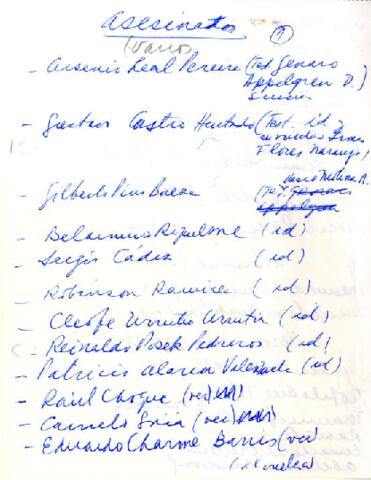 Asesinatos ①
(Varios
- Arsenio Leal Pereira (Test Genaro
Appelgren D.)
- Gastón Castro Hurtado (Test. id y
Flores Naranjo)
- Gilberto Pino Baeza
(Test. Genaro
Appelgren
- Belarmino Riquelme (id)
- Sergio Cádiz (id)
- Robinson Ramírez (id)
- Cleofe Urrutia Urrutia (id)
- Reinaldo Poseck Pedreros (id)
- Patricio Alarcon Valenzuela (id)
- Raúl Choque (ver)
- Camelo Soria (ver)
- Eduardo Charme Barros (ver)